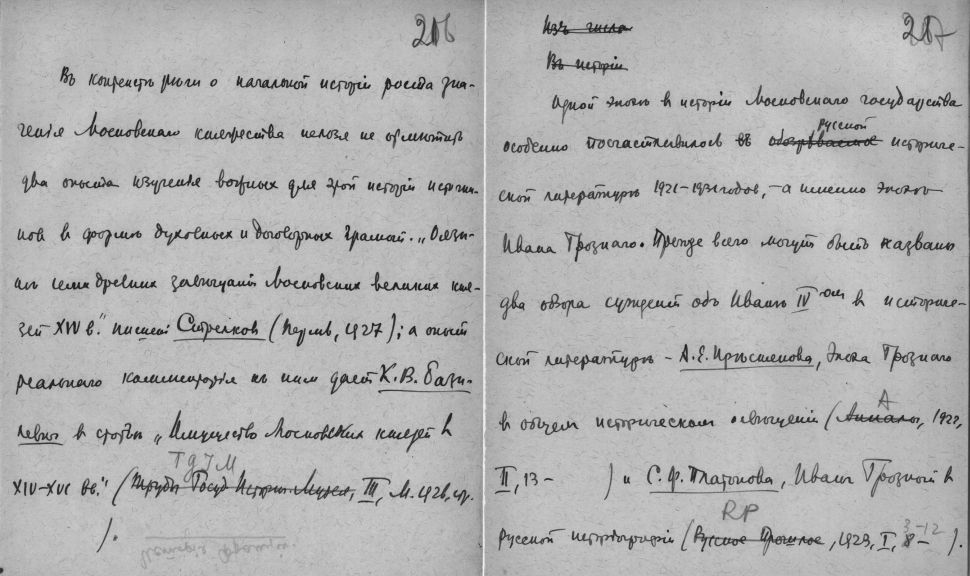 206
Въ контексте речи о начальной исторiи роста зна-
ченiя Московскаго княжества нельзя не отметить
два опыта изученiя важных для этой исторiи источни-
ков в форме духовных и договорных грамот. „Оязы-
ке семи древних завещанiй Московских великих кня-
зей XIV в." пишет Стрелков (Пермь, 1927); а опыт
реальнаго комментарiя к ним дает К. В. Бази-
левич в статье „Имущество Московских князей в
TgIM
XIV–XVI вв." (Труды Госуд Истори Музея, III, М. 1926, стр.
).
207
Изъ числа
Въ исторiи
Одной эпохе в исторiи Московскаго государства
русской
особенно посчастливилось въ обозреваемое историче-
ской литературе 1921–1931 годов, – а именно эпохе
Ивана Грознаго. Прежде всего могут быть названы
два обзора суждений объ Иване IV-ом в историче-
ской литературе – А. Е. Преснякова, Эпоха Грознаго
А
в общем историческом освещенiи (Анналы, 1922,
II, 13 – ) и С. Ф. Платонова, Иван Грозный в
RP
русской исторiографiи (Русское Прошлое, 1923, I, 3–12 ).